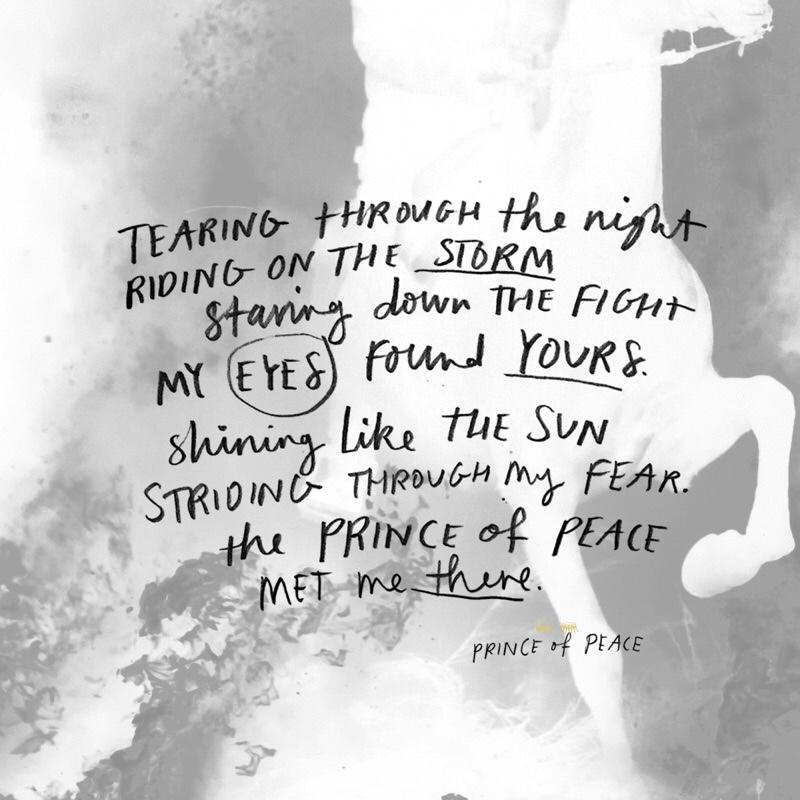 TEARING tHROUGH the night
RIDING ON THE STORM
staring down THE FIGHt
MY EYES Found YOURS.
shining like THE SUN
STRIDING THROUGH my FEAR.
the PRINCE of PEACE
MET me there.
PRINCE of PEACE